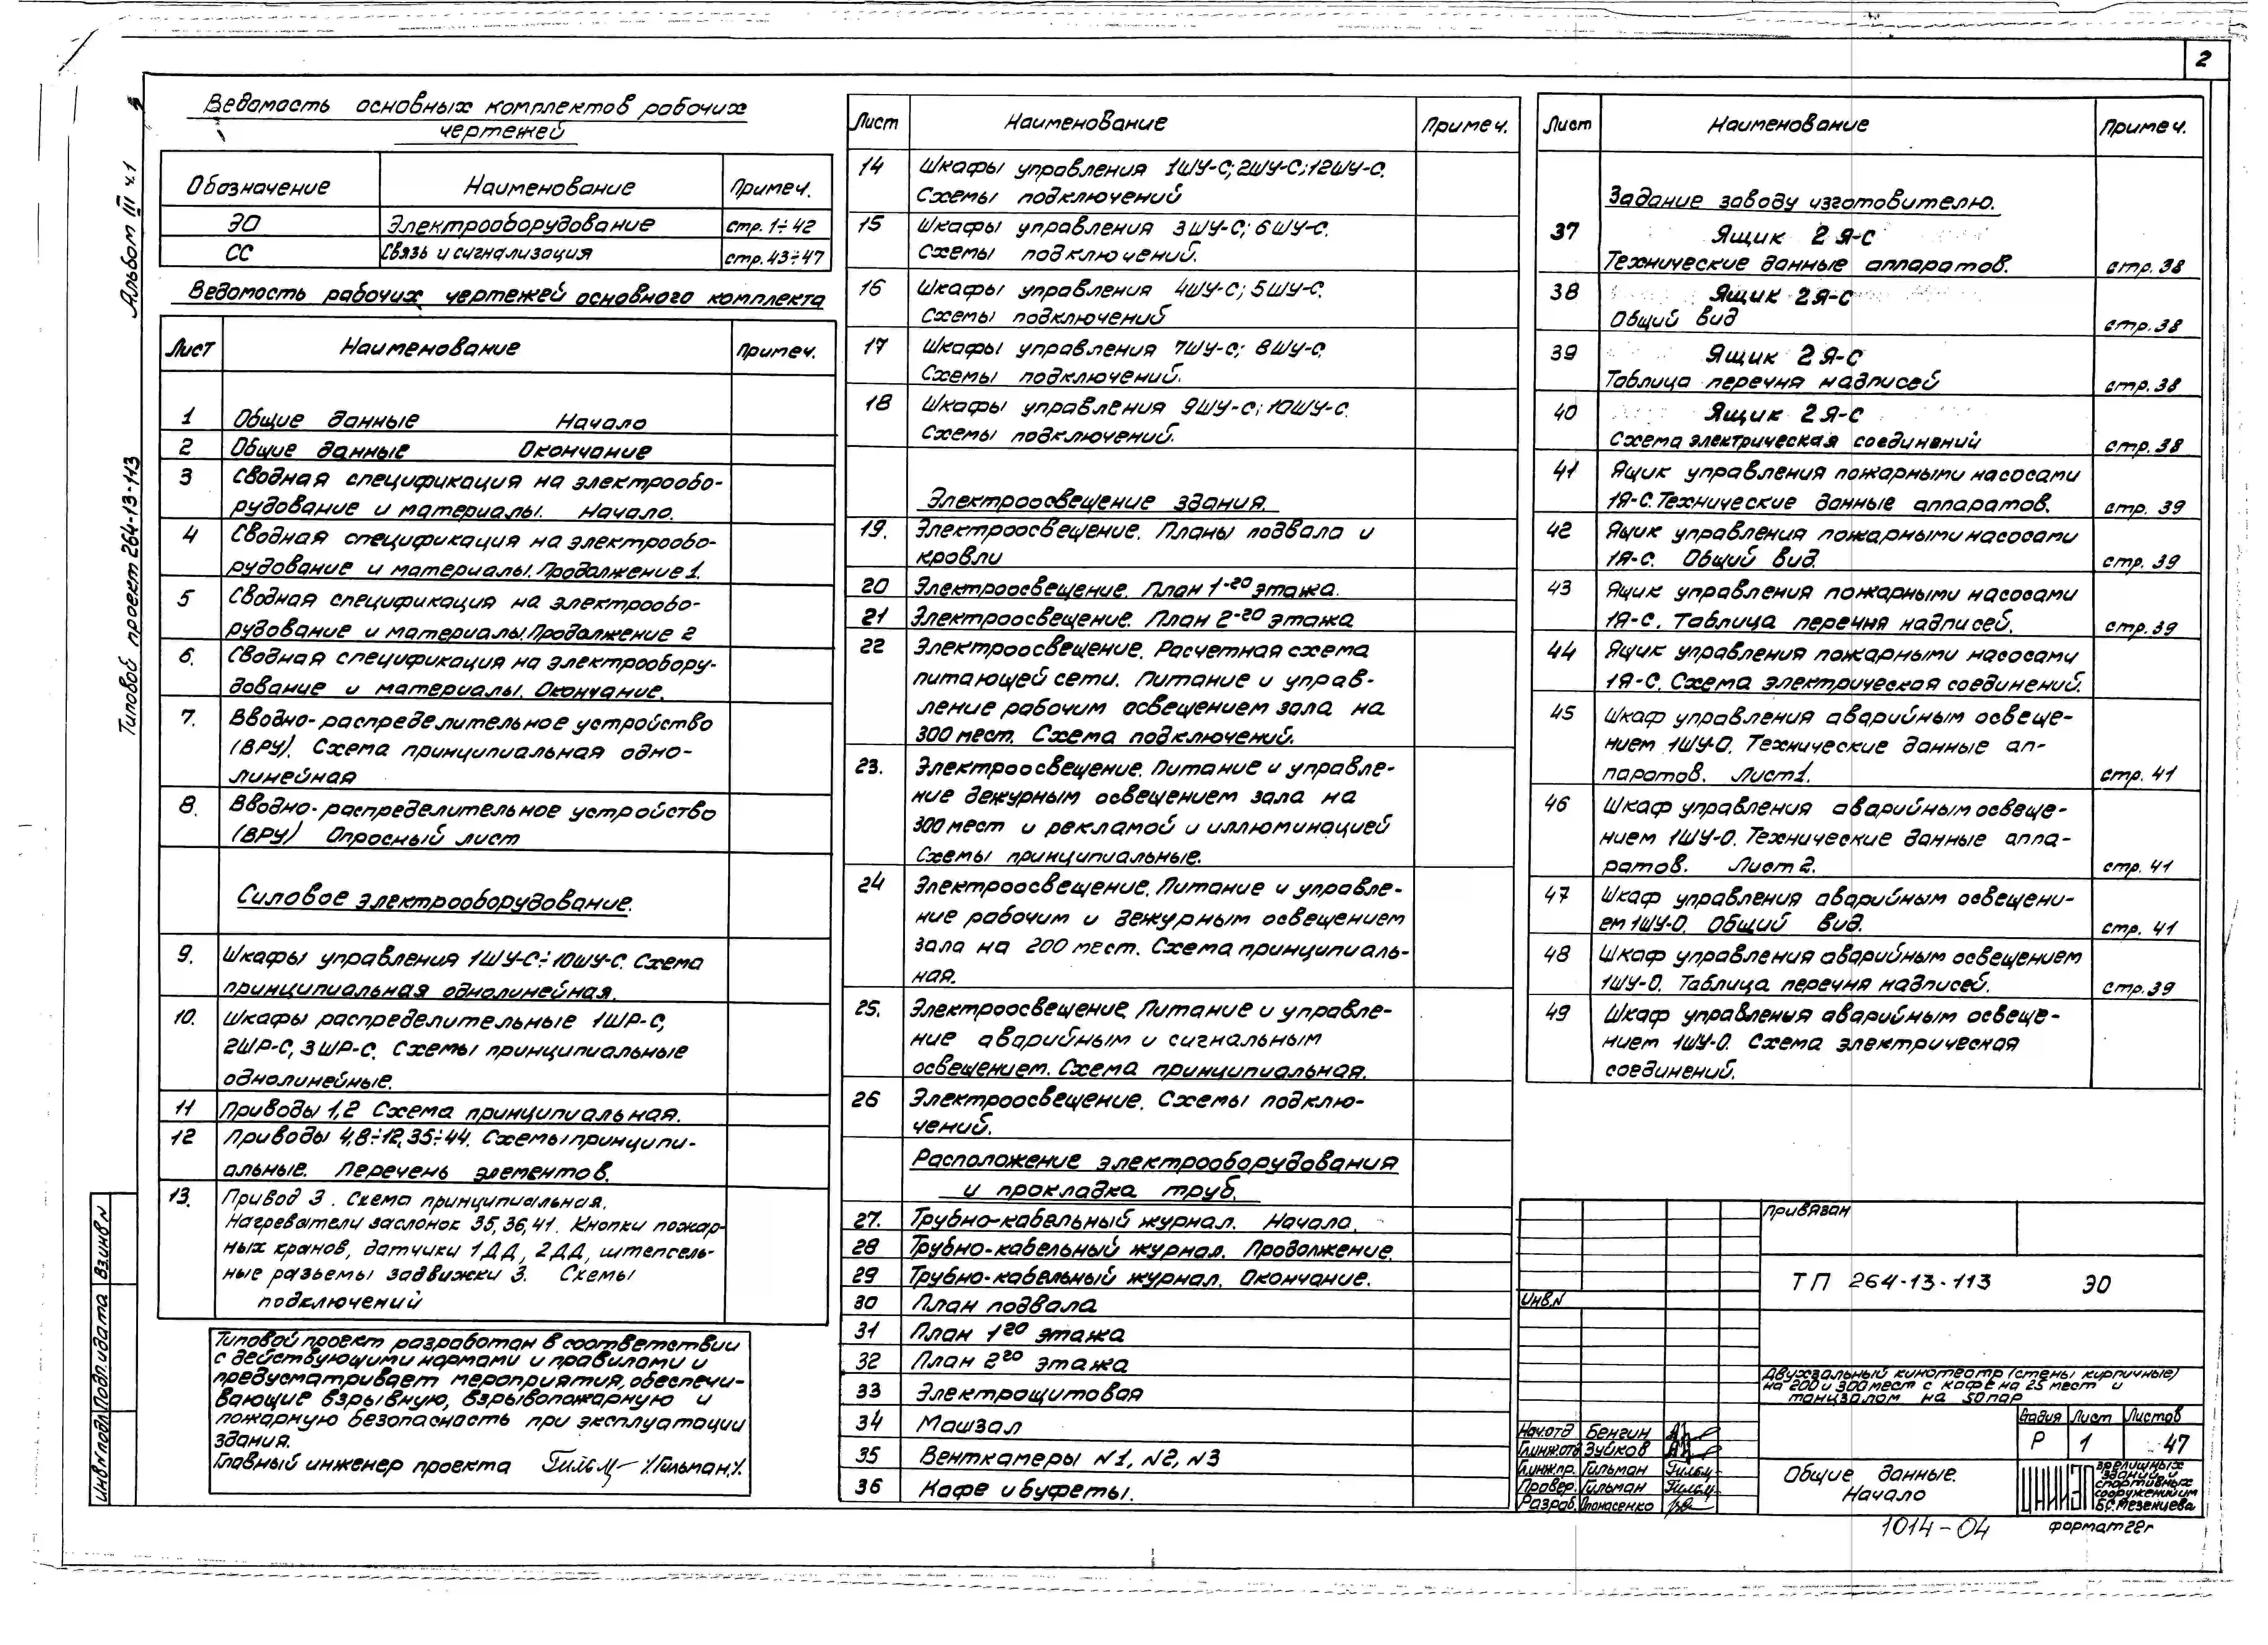 2
Альбом III ч.1
Типовой проект 264-13-113
Ведомость основных комплектов рабочих
чертежей
Обозначение Наименование Примеч.
ЭО Электрооборудование стр. 1÷42
СС Связь и сигнализация стр. 43÷47
Ведомость рабочих чертежей основного комплекта
Лист Наименование Примеч.
1 Общие данные Начало
2 Общие данные Окончание
3 Сводная спецификация на электрообо-
рудование и материалы. Начало.
4 Сводная спецификация на электрообо-
рудование и материалы. Продолжение 1.
5 Сводная спецификация на электрообо-
рудование и материалы. Продолжение 2
6. Сводная спецификация на электрообору-
дование и материалы. Окончание.
7. Вводно-распределительное устройство
(ВРУ). Схема принципиальная одно-
линейная
8. Вводно-распределительное устройство
(ВРУ) Опросный лист
Силовое электрооборудование.
9. Шкафы управления 1ШУ-С÷10ШУ-С. Схема
принципиальная однолинейная.
10. Шкафы распределительные 1ШР-С,
2ШР-С, 3ШР-С. Схемы принципиальные
однолинейные.
11 Приводы 1,2 Схема принципиальная.
12 Приводы 4,8÷12,35÷44. Схемы принципи-
альные. Перечень элементов.
13. Привод 3. Схема принципиальная.
Нагреватели заслонок 35,36,41. Кнопки пожар-
ных кранов, датчики 1ДД, 2ДД, штепсель-
ные разъемы задвижки 3. Схемы
подключений
Типовой проект разработан в соответствии
с действующими нормами и правилами и
предусматривает мероприятия, обеспечи-
вающие взрывную, взрывопожарную и
пожарную безопасность при эксплуатации
здания.
Главный инженер проекта /Гильман./
Лист Наименование Примеч.
14 Шкафы управления 1ШУ-С; 2ШУ-С; 12ШУ-С.
Схемы подключений
15 Шкафы управления 3ШУ-С; 6ШУ-С.
Схемы подключений.
16 Шкафы управления 4ШУ-С; 5ШУ-С.
Схемы подключений
17 Шкафы управления 7ШУ-С; 8ШУ-С
Схемы подключений.
18 Шкафы управления 9ШУ-С; 10ШУ-С.
Схемы подключений.
Электроосвещение здания.
19. Электроосвещение. Планы подвала и
кровли
20 Электроосвещение. План 1-го этажа.
21 Электроосвещение. План 2-го этажа
22 Электроосвещение. Расчетная схема
питающей сети. Питание и управ-
ление рабочим освещением зала на
300 мест. Схема подключений.
23. Электроосвещение. Питание и управле-
ние дежурным освещением зала на
300 мест и рекламой и иллюминацией
Схемы принципиальные.
24 Электроосвещение. Питание и управле-
ние рабочим и дежурным освещением
зала на 200 мест. Схема принципиаль-
ная.
25. Электроосвещение. Питание и управле-
ние аварийным и сигнальным
освещением. Схема принципиальная.
26 Электроосвещение. Схемы подклю-
чений.
Расположение электрооборудования
и прокладка труб.
27. Трубно-кабельный журнал. Начало.
28 Трубно-кабельный журнал. Продолжение.
29 Трубно-кабельный журнал. Окончание.
30 План подвала
31 План 1го этажа
32 План 2го этажа
33 Электрощитовая
34 Машзал
35 Венткамеры N1, N2, N3
36 Кафе и буфеты.
Лист Наименование Примеч.
Задание заводу изготовителю.
37 Ящик 2Я-С
Технические данные аппаратов. стр. 38
38 Ящик 2Я-С
Общий вид стр. 38
39 Ящик 2Я-С
Таблица перечня надписей стр. 38
40 Ящик 2Я-С
Схема электрическая соединений стр. 38
41 Ящик управления пожарными насосами
1Я-С. Технические данные аппаратов. стр. 39
42 Ящик управления пожарными насосами
1Я-С. Общий вид. стр. 39
43 Ящик управления пожарными насосами
1Я-С. Таблица перечня надписей. стр. 39
44 Ящик управления пожарными насосами
1Я-С. Схема электрическая соединений.
45 Шкаф управления аварийным освеще-
нием 1ШУ-О. Технические данные ап-
паратов. Лист 1. стр. 41
46 Шкаф управления аварийным освеще-
нием 1ШУ-О. Технические данные аппа-
ратов. Лист 2. стр. 41
47 Шкаф управления аварийным освещени-
ем 1ШУ-О. Общий вид. стр. 41
48 Шкаф управления аварийным освещением
1ШУ-О. Таблица перечня надписей. стр. 39
49 Шкаф управления аварийным освеще-
нием 1ШУ-О. Схема электрическая
соединений.
Привязан
Инв.N
ТП 264-13-113 ЭО
Двухзальный кинотеатр (стены кирпичные)
на 200 и 300 мест с кафе на 25 мест и
танцзалом на 50 пар
Стадия Лист Листов
Р 1 47
Нач.отд Бенгин
Гл.инж.отд Зуйков
Гл.инж.пр. Гильман
Провер. Гильман
Разраб. Опонасенко
Общие данные.
Начало
ЦНИИЭП зрелищных
зданий и
спортивных
сооружений им
Б.С. Мезенцева
1014-04
формат 22г
Инв.N подл. Подп. и дата Вз.инв.N